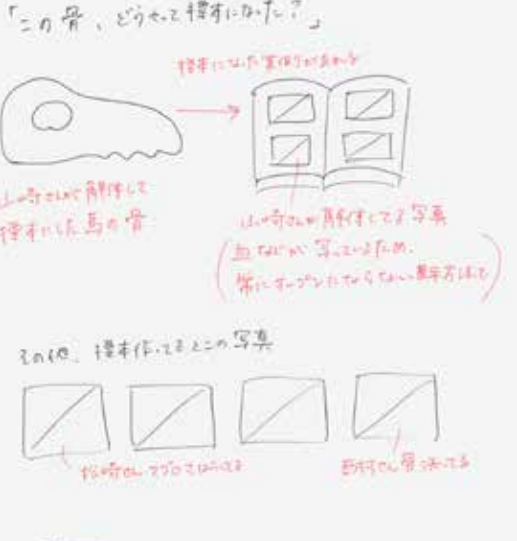 「この骨、どうやって標本になった？」
標本になった実例が
山崎さんが解体して
標本にした馬の骨
山崎さんが解体してる写真
血などが写っているため、
常にオープンにならない展示方法で
その他、標本作ってるとこの写真
松崎さん マグロさばいてる
西村さん 骨洗ってる